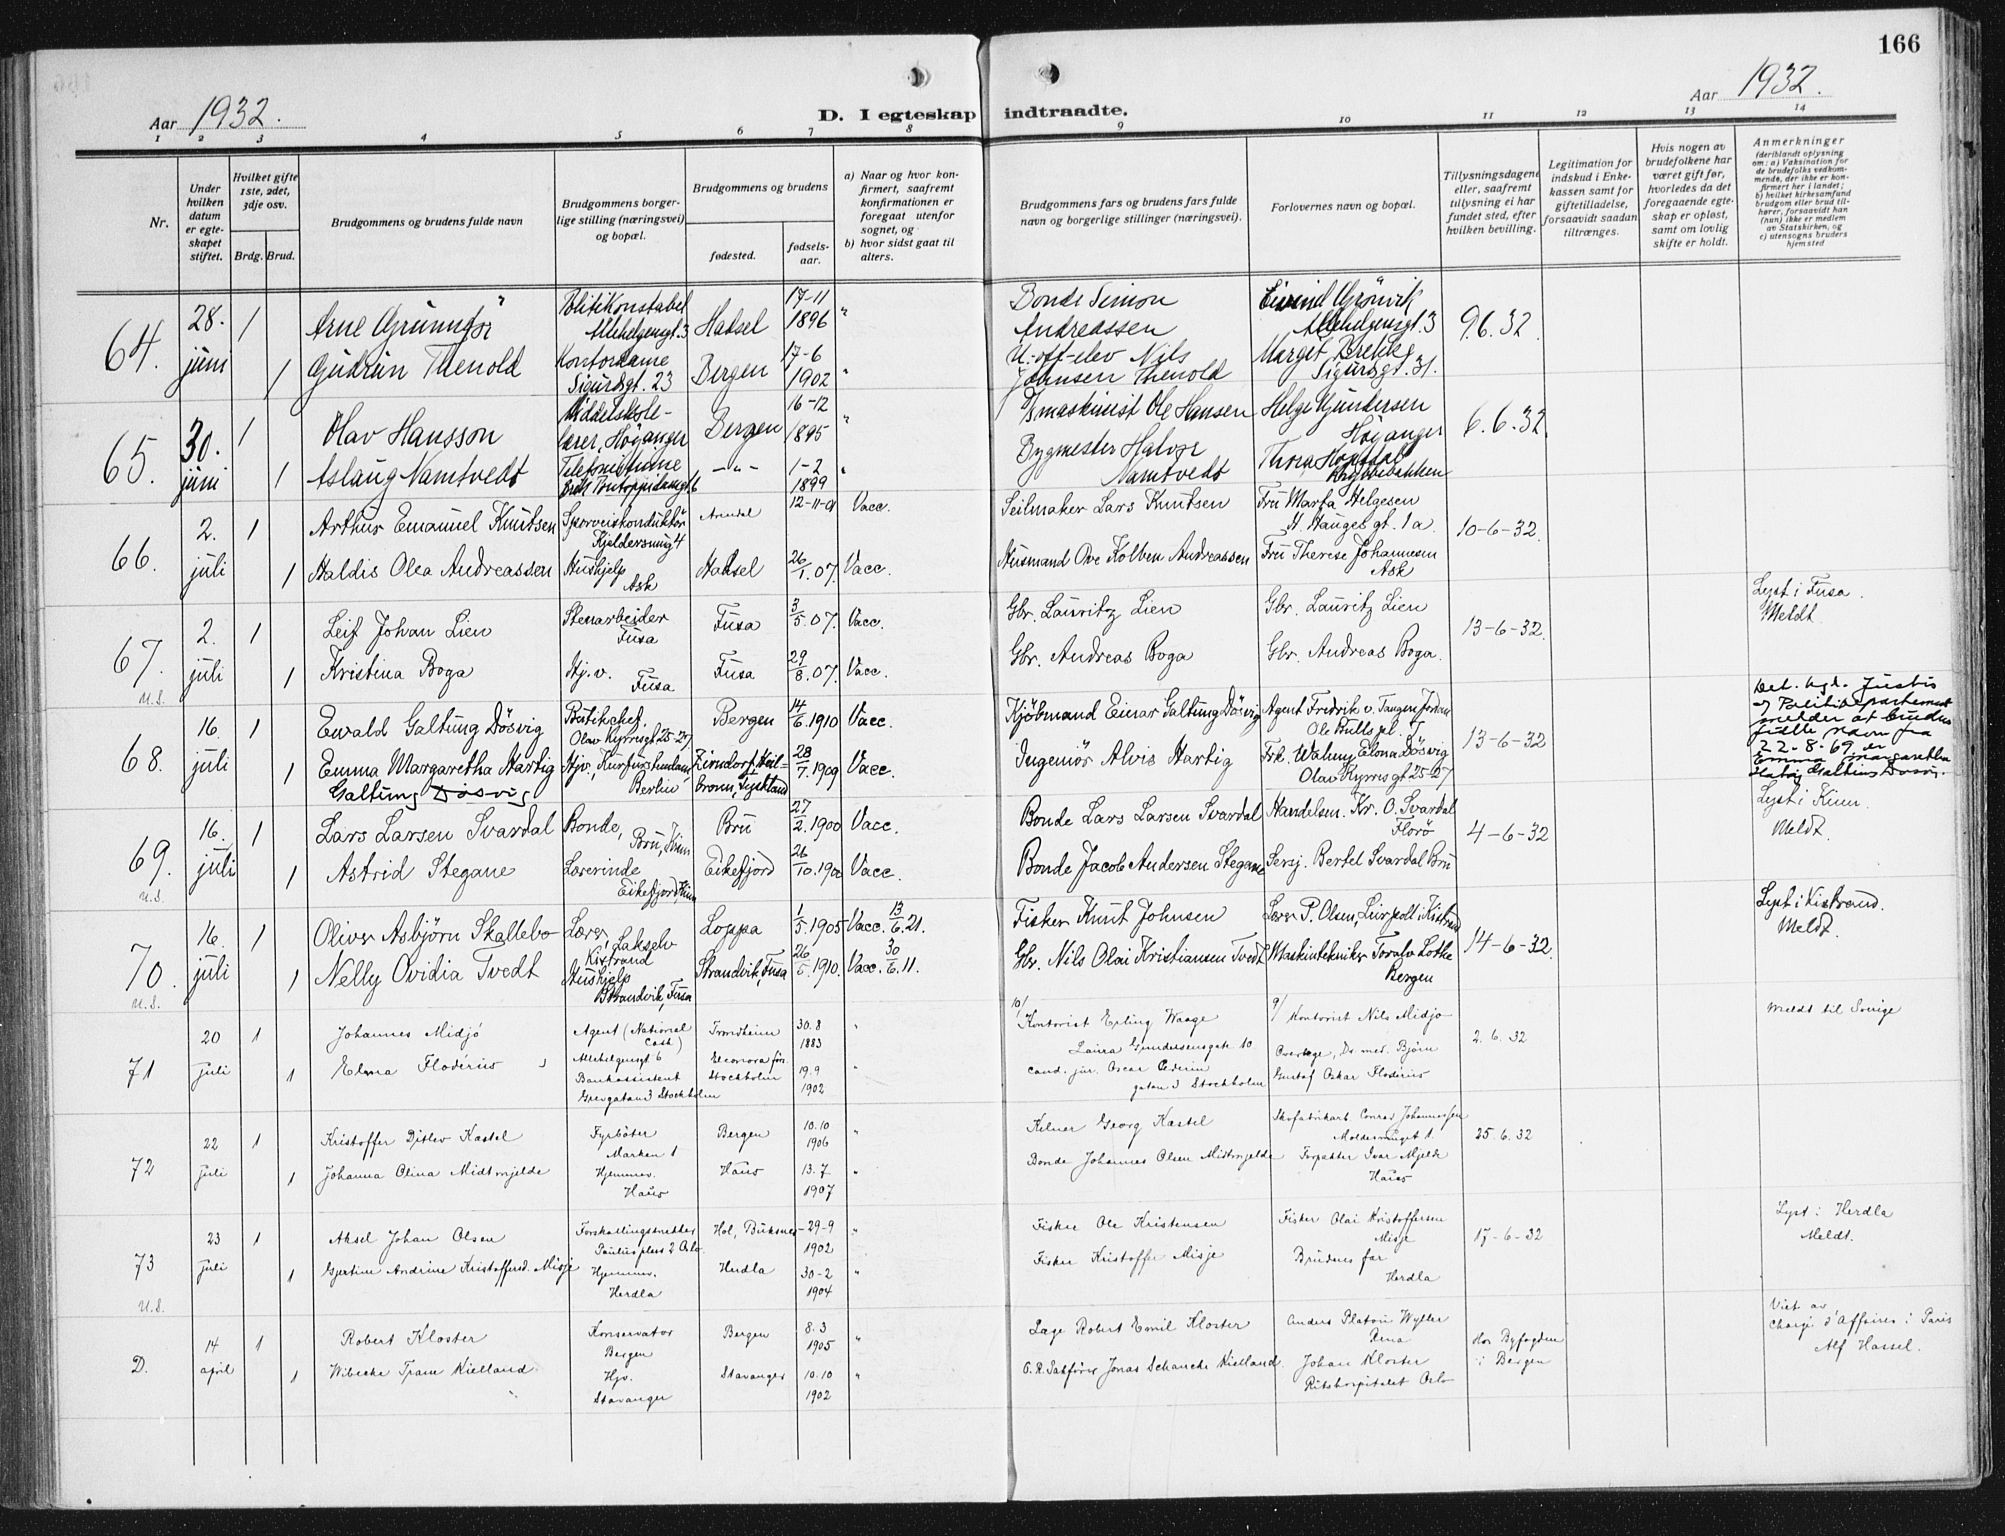 166
Aar 1932.
D. I egteskap indtraadte.
Aar 1932.
1 2 3 4 5 6 7 8 9 10 11 12 13 14
Nr.
Under hvilken datum er egteskapet stiftet.
Hvilket gifte 1ste, 2det, 3dje osv.
Brdg. Brud.
Brudgommens og brudens fulde navn
Brudgommens borgerlige stilling (næringsvei) og bopæl.
Brudgommens og brudens
fødested.
fødselsaar.
a) Naar og hvor konfirmert, saafremt konfirmationen er foregaat utenfor sognet, og
b) hvor sidst gaat til alters.
Brudgommens fars og brudens fars fulde navn og borgerlige stillinger (næringsvei).
Forlovernes navn og bopæl.
Tillysningsdagene eller, saafremt tillysning ei har fundet sted, efter hvilken bevilling.
Legitimation for indskud i Enkekassen samt for giftetilladelse, forsaavidt saadan tiltrænges.
Hvis nogen av brudefolkene har været gift før, hvorledes da det foregaaende egteskap er opløst, samt om lovlig skifte er holdt.
Anmerkninger
(deriblandt oplysning om: a) Vaksination for de brudefolks vedkommende, der ikke er konfirmert her i landet; b) hvilket kirkesamfund brudgom eller brud tilhører, forsaavidt han (hun) ikke er medlem av Statskirken, og c) utensogns bruders hjemsted
64. 28. juni
1 Arne Grünnför Politikonstabel Allehelgensgt. 3 Hadsel 17-11 1896 " Bonde Simon Andreassen Eivind Grönvik Allehelgensgt. 3 9.6.32
1 Gudrun Thenold Kontordame Sigurdsgt. 23 Bergen 17-6 1902 " U.off-elev Nils Johnsen Thenold Marget Brekke Sigurdsgt. 31.
65. 30. juni
1 Olav Hansson Middelskolelærer, Höyanger Bergen 16-12 1895 " Ole Hansen Helge Gundersen Höyanger 6.6.32
1 Aslaug Namtvedt Telefonistinne -"- 1-2 1899 " Bygmester Halvor Namtvedt Thora
66. 2. juli
1 Arthur Emanuel Knutsen Sporveiskonduktör Kjeldersmug 4 Arendal 12-11-01 Vacc. Seilmaker Lars Knutsen Fru Marta Helgesen H. Hauges gt. 1a. 10-6-32.
1 Haldis Olea Andreassen Hushjelp Ask Hadsel 26/1. 07. Vacc. Husmand Ove Kolben Andreassen Fru Therese Johannesen Ask
67. u.s. 2. juli
1 Leif Johan Lien Stenarbeider Fusa Fusa 3/5. 07. Vacc. Gbr. Lauritz Lien Gbr. Lauritz Lien 13-6-32. Lyst i Fusa. Meldt.
1 Kristina Boga Hj.v. Fusa Fusa 29/8. 07. Vacc. Gbr. Andreas Boga Gbr. Andreas Boga.
68. 16. juli
1 Ewald Galtung Dösvig Butikchef. Olav Kyrresgt 25-27 Bergen 14/6. 1910 Vacc. Kjöbmand Einar Galtung Dösvig Agent Fredrik v. Tangen Ole Bulls pl. 13-6-32
1 Emma Margaretha Hartig Galtung Døsvig Hjv., Kurfürstendam Berlin Zirndorf, Heilbronn, Tyskland 28/7. 1909 Vacc. Ingeniör Alvis Hartig Frk. Elona Dösvig Olav Kyrresgt 25-27
Det kgl. Justis og Politidepartement melder at brudens fulle navn fra 22-8-69 er Emma Margaretha Galtung Døsvig.
69. u.s. 16. juli
1 Lars Larsen Svardal Bonde, Bru, Kinn Bru 27/2. 1900 Vacc. Bonde Lars Larsen Svardal Handelsm. Kr. O. Svardal Florö 4-6-32 Lyst i Kinn. Meldt.
1 Astrid Stegane Lærerinde Eikefjord, Kinn Eikefjord 26/10. 1900 Vacc. Bonde Jacob Andersen Stegane Sersj. Bertel Svardal Bru
70. u.s. 16. juli
1 Oliver Asbjörn Skallebo Lærer, Lakselv Kistrand Loppa 1/5. 1905 Vacc. 13/6. 21. Fisker Knut Johnsen Lærer P. Olsen, Leirpoll i Kistrand 14-6-32 Lyst i Kistrand. Meldt.
1 Nelly Ovidia Tvedt Hushjelp Strandvik, Fusa Strandvik, Fusa 26/5. 1910. Vacc. 30/6. 11. Gbr. Nils Olai Kristiansen Tvedt Maskintekniker Toralv Lothe Bergen
71 20 juli
1 Johannes Midjo Agent (National Cash) Allehelgensgt 6 Trondheim 30.8 1883 " 10/ Kontorist Erling Waage Laura Gundersensgate 10 9/ Kontorist Nils Midjo 2.6.32 Meldt til Sverige
1 Elma Floderus Bankassistent Grevgatan 3 Stockholm Eleonora förs. Stockholm 19.9 1902 " Cand. jur. Oscar gatan 3 Stockholm Overlege, Dr. med. Björn Gustaf Oskar Floderus
72 22 juli
1 Kristoffer Ditlev Kastel Fyrböter Marken 1 Bergen 10.10 1906 " Kelner Georg Kastel Skofabrikant Conrad Johannessen Moldesmuget 1. 25.6.32
1 Johanna Olina Midtmjelde Hjemmev. Haus Haus 13.7 1907 " Bonde Johannes Olsen Midtmjelde Forpakter Ivar Mjelde Haus
73 u.s. 23 juli
1 Aksel Johan Olsen Forskallingssnekker Paulus plass 2 Oslo Hol, Buksnes 29-9 1902 " Fisker Ole Kristensen Fisker Olai Kristoffersen Misje 17-6-32 Lyst i Herdla Meldt.
1 Gjertine Andrine Kristoffersd. Misje Hjemmev. Herdla Herdla 30-2 1904 " Fisker Kristoffer Misje Brudens far Herdla
D. 14 april
1 Robert Kloster Konservator Bergen Bergen 8.3 1905 " Læge Robert Emil Kloster Anders Platou Wyller Rena Hos Byfogden i Bergen Viet av Chargé d'Affaires i Paris Alf Hassel.
1 Wibecke Tram Kielland Hjv. Stavanger Stavanger 10.10 1902 " O.R. Sakförer Jonas Schancke Kielland Johan Kloster Rikshospitalet Oslo